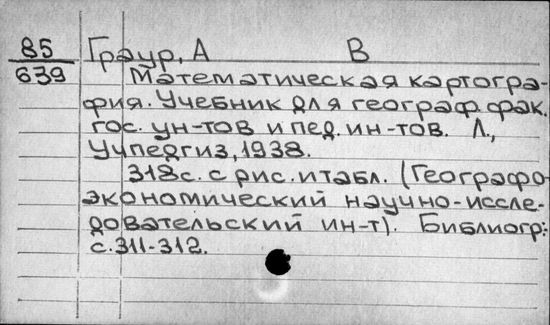 85 Граур, А В
639 Математическая картогра-
фия. Учебник для географ. фак.
гос. ун-тов и пед. ин-тов. Л.,
Учпедгиз, 1938.
318 с. с рис. и табл. (Географо-
экономический научно-иссле-
довательский ин-т). Библиогр.:
с. 311-312.